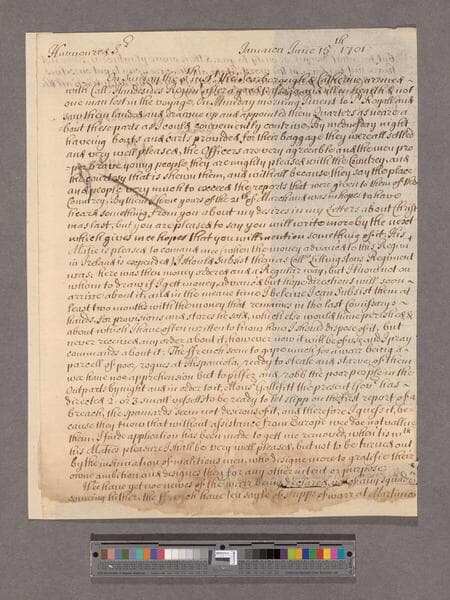 Honoured Sr
Jamaica June 15th 1701
On Sunday the 8th inst. the Scarborough & Catherine arrived
with Coll. Handasydes Regimt after a good passage and all in health & not
one man lost in the voyage. On Munday morning I went to Pt Royall and
saw them landed and drawne up and appointed them Quarters as near or
about these parts as I could conveniently contrive. By wednesday night
haveing boats and Carts provided for their baggage they were all setled
and very well pleased, the Officers are very agreable and the men
brave young people they are mighty pleased with the Countrey and
the courtesy that is shewn them, and withall because they say the place
and people very much to exceed the reports that were given to them of this
Countrey. by them I have yours of the 21th of March and was in hopes to have
heard something from you about my desires in my Letters about Christ
mas last, but you are pleased to say you will write more by the next
which gives me hopes that you will mention something of it. His
Matie is pleased to command me (when the money advanced to this Regimt
in Ireland is expended) I should subsist them as Coll. Lillingstons Regiment
was: there was then money ordered and a Regular way, but I know not on
whom to draw if I gett money advanced but hope directions will soon
arrive about it, and in the meane time I beleive I can Subsist them at
least two months with the money that remaines in the last Comissarys
hands, for provisions and stores he sold, which else would have perished &
about which I have often written to know how I should dispose of it, but
never received any order about it; however now it will be of use and I pray
commands about it. The ffrench seem to gape much for a warr being a
parcell of poor rogues at Hispaniola, ready to steale and starve; of them
we have noe apprehension but to pilfer and robb the poor people in the
Outparts by night and in order to it, Monr Galliffet the present Govr has
directed 2 or 3 small vessells to be ready to lett slipp on the first report of a
breach, the Spaniards seem not desirous of it, and therefore I guess it, be-
cause they know that without assistance from Europe wee doe not vallue
them. I finde application has been made to gett me removed, when it is with
his Maties pleasure I shall be very well pleased, but not to be turned out
by the insinuation of malitious men, who designe more to gratifie their
owne ambition and designes then for any other intent or purpose.
Wee have yet noe newes of the warr being declared, nor of any squadron
comeing hither. the ffrench have ten sayle of shipps of warr at Martinico